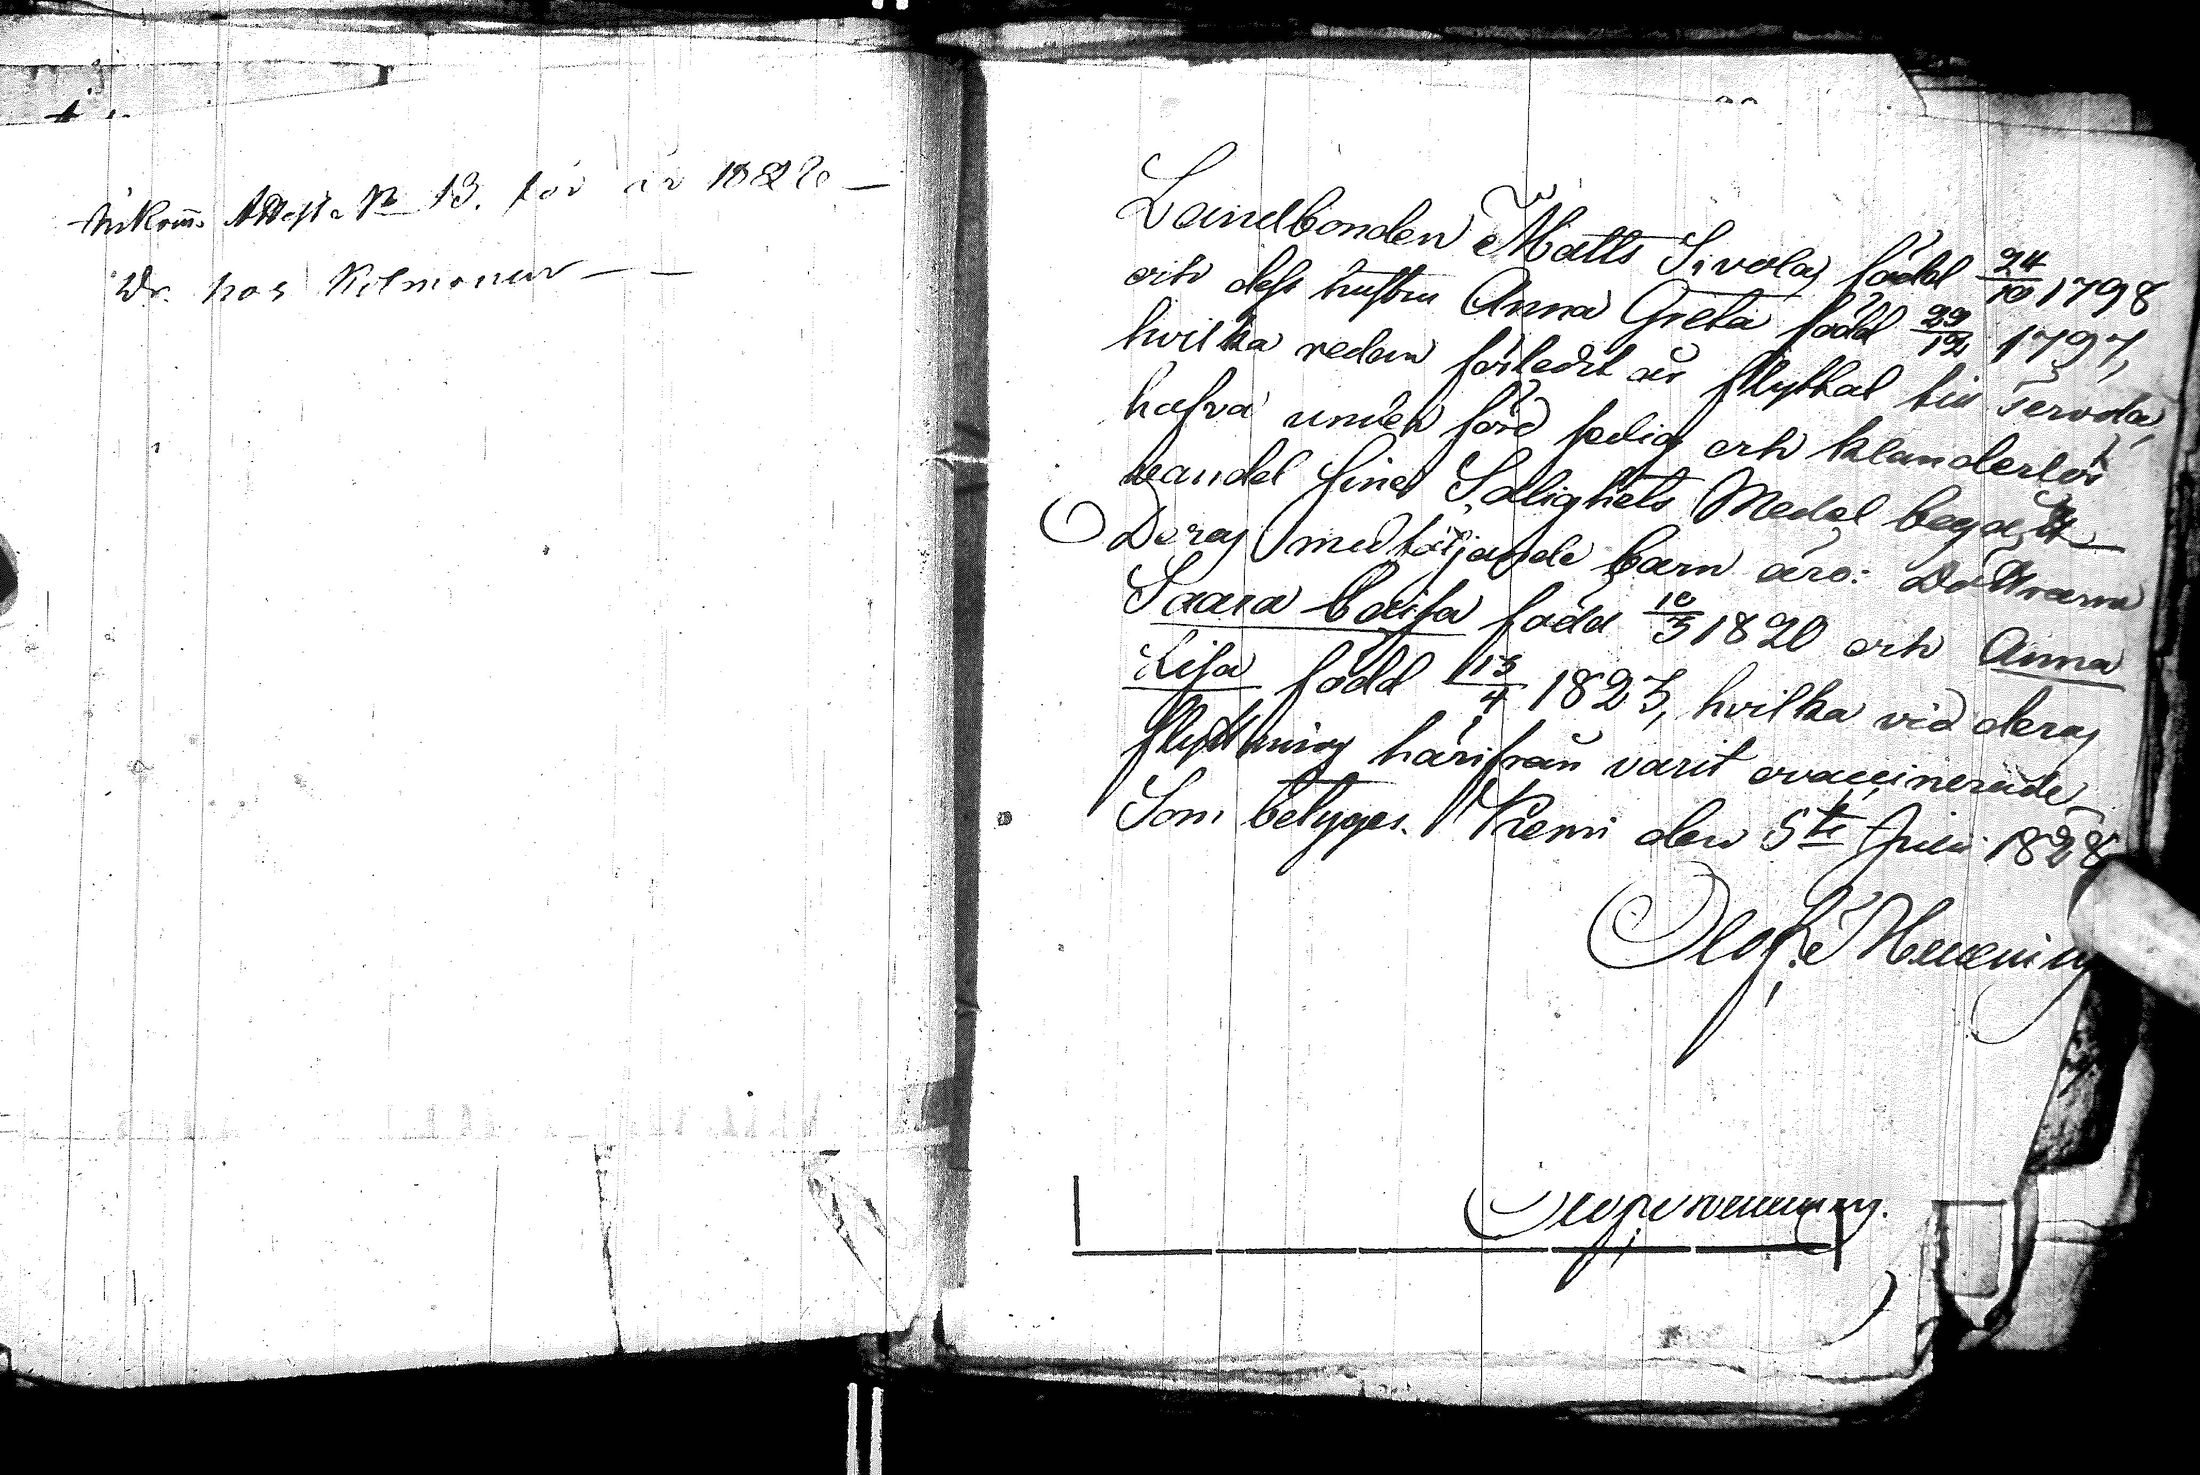 Ankom. Attest № 13. för år 1828 —
Dr. hos Kolmonen — —
Landbonden Matts Sivola, född 24/10 1798
och dess hustru Anna Greta född 29/12 1797,
hvilka redan förledit år flyttat till Tervola,
hafva under förd sedig och klanderlös
vandel sine Salighets Medel begått
Deras medföljande barn äro: Döttrarna
Saara Caisa född 10/3 1820 och Anna
Lisa född 13/4 1823, hvilka vid deras
flyttning härifrån varit ovaccinerade
Som betyges. Kemi den 5te Julii 1828
Olof